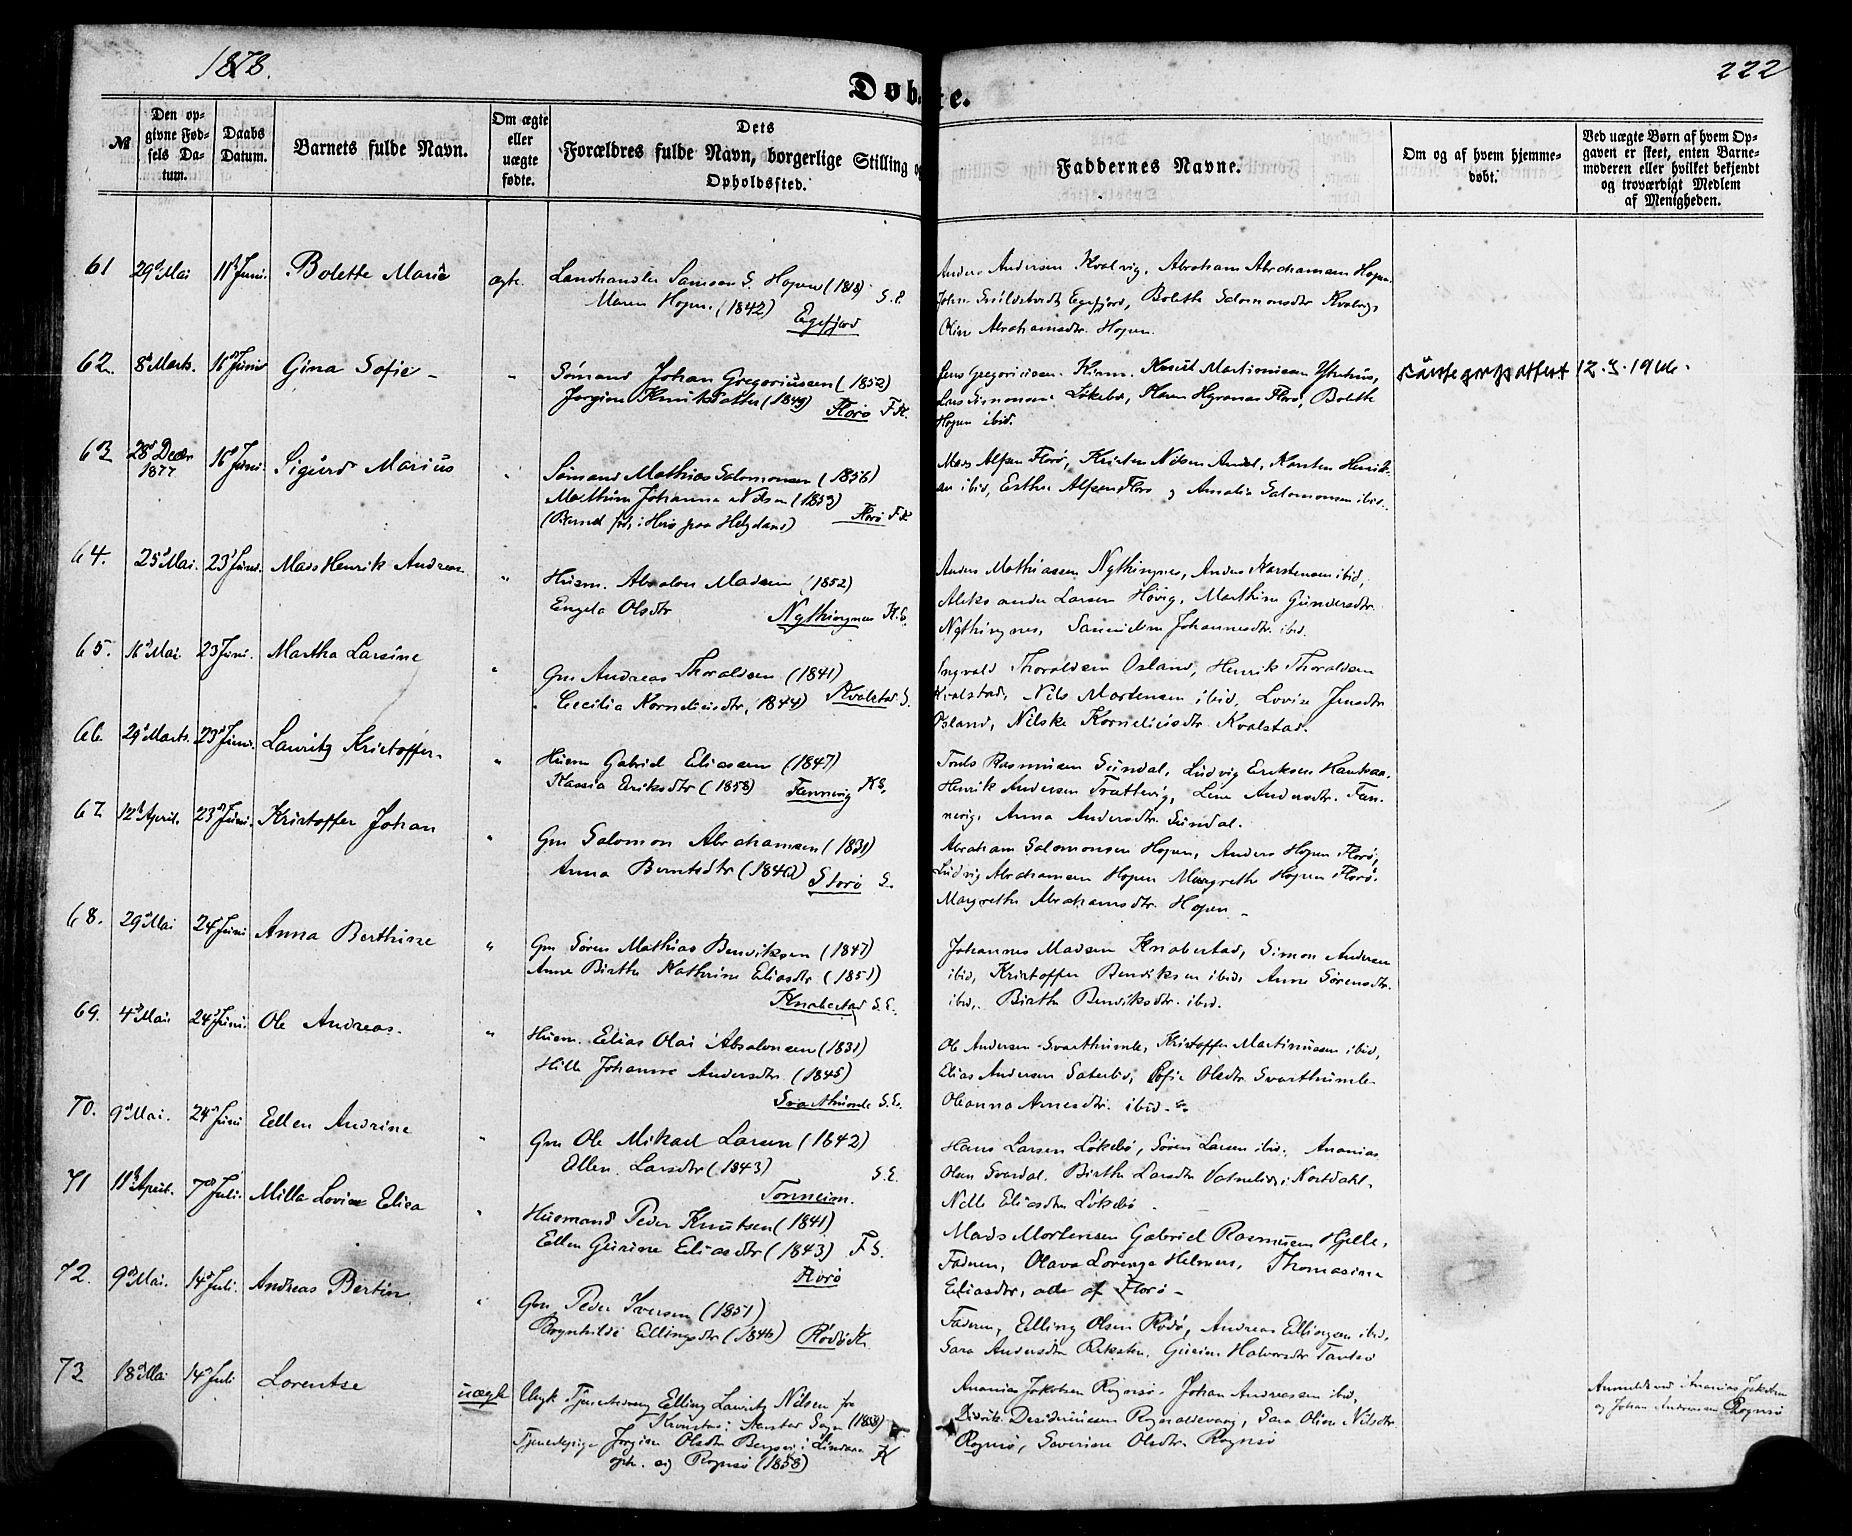 1878.
222
Døbte.
№
Den opgivne Fødsels Datum.
Daabs Datum.
Barnets fulde Navn.
Om ægte eller uægte fødte.
Dets Forældres fulde Navn, borgerlige Stilling og Opholdssted.
Faddernes Navne.
Om og af hvem hjemmedøbt.
Ved uægte Børn af hvem Opgaven er skeet, enten Barnemoderen eller hvilket bekjendt og troværdigt Medlem af Menigheden.
61 29d Mai 11t Juni. Bolette Marie ægte.
Landhandler Samson S. Hopen (1818) S.E.
Maren Hopen. (1842)
Egefjord
Anders Andersen Kvalvig, Abraham Abrahamsen Hopen
Egefjord, Bolette Salomonsdtr Kvalvig,
Abrahamsdtr. Hopen.
62. 8d Marts. 16d Juni Gina Sofie "
Sømand Johan Gregoriusen (1852)
Jorgine Knutsdatter (1849) Florø F.K.
Jens Gregoriusen Kinn. Knud Martinusen Ytrehus,
Lars Simonsen Løkebø, Maren Florø, Bolette
Hopen ibid.
12.3.1946.
63 28d Decbr 1877 16d Juni. Sigurd Marius "
Sømand Mathias Salomonsen (1856)
Marthine Johanne Nilsen (1853)
(Barnet født i Herø paa Helgeland) Florø F.K
Mads Alfsen Florø, Kristen Nilsen Karsten Henrik-
sen ibid, Esther Alfsen Florø og Amalia Salomonsen ibid.
64. 25d Mai. 23d Juni. Mads Henrik Andreas "
Husm. Absalon Madsen (1852)
Engela Olsdtr Nythingnes K.S.
Anders Mathiassen Nythingnes, Anders Karstensen ibid,
Aleksander Larsen Høvig, Marthine Gundersdtr
Nythingnes, Johannesdtr. ibid.
65. 16d Mai. 23 Juni. Martha Larsine "
Gm Andreas Thoraldsen (1841)
Cecilia Kornelisdtr, 1844) Kvalstad S.
Ingvald Thoraldsen Osland, Henrik Thoraldsen
Kvalstad, Nils Mortensen ibid, Lovise Jensdtr
Osland, Nilske Korneliusdtr Kvalstad.
66 29d Marts. 23d Juni. Lauritz Kristoffer "
Husm Gabriel Eliassen (1847)
Kassia Eriksdtr (1858) Fannevig K.S.
Rasmusen Sundal, Ludvig Eriksen
Henrik Andersen Trættevig, Lene Andersdtr. Fan-
nevig. Anna Andersdtr. Sundal.
67. 12d April. 23d Juni. Kristoffer Johan "
Gm Salomon Abrahamsen (1831)
Anna Berntsdtr (1840) Storø S.
Abraham Salomonsen Hopen, Anders Hopen Florø,
Ludvig Abrahamsen Hopen Margrethe Hopen Florø.
Margrethe Abrahamsdtr. Hopen
68. 29d Mai 24d Juni Anna Berthine "
Gm Søren Mathias Bendiksen (1847)
Anne Birthe Kathrine Eliasdtr (1851)
Knabestad S.E.
Johannes Madsen Knabestad, Simon Andersen
ibid, Kristoffer Bendiksen ibid, Anne Sørensdtr.
ibid, Birthe Bendiksdtr. ibid.
69. 4d Mai 24d Juni. Ole Andreas. "
Husm. Elias Olai Absalonsen (1831)
Hille Johanne Andersdtr (1845)
Svarthumle S.E.
Ole Andersen Svarthumle, Kristoffer Martinussen ibid,
Elias Andersen Sæterlid, Sofie Olsdtr Svarthumle
Oleanna Arnesdtr. ibid.
70. 9d Mai. 24d Juni Ellen Andrine "
Gm Ole Mikael Larsen (1842)
Ellen Larsdtr (1843) S.E.
Tonheim.
Hans Larsen Løkebø, Søren Larsen ibid, Ananias
Olsen Svardal. Birthe Larsdtr i Nordahl.
Nelle Eliasdtr Løkebø
71 11t April. 7d Juli. Milla Lovise Elisa "
Husmand Peder Knutsen (1841)
Ellen Gurine Eliasdtr (1843) F S.
Florø
Mads Mortensen Gabriel Rasmusen Hjelle,
Faderen, Olava Lorenza Helmers, Thomasine
Eliasdtr, alle af Florø
72. 9d Mai. 14d Juli. Andreas Bertin "
Gm Peder Iversen (1851)
Ragnhilde Ellingsdtr (1846) Rødø K.
Faderen, Elling Olsen Rødø, Andreas Ellingsen ibid,
Sara Andersdtr Reksten. Halvorsdtr
73 18d Mai 14d Juli Lorentse uægte
Ungk Tjenestedreng Elling Lauritz Nilsen fra
Sogn (1858)
Tjenestepige Jorgine Olsdtr
oph. sig Rognsø (1858) K
Ananias Jakobsen Rognsø. Johan Andreassen ibid,
Desideriussen Rognaldsvaag, Sara Oline Nilsdtr
Rognsø, Severine Olsdtr. Rognsø
Anmeldt ved Ananias Jakobsen
og Johan Andreassen Rognsø